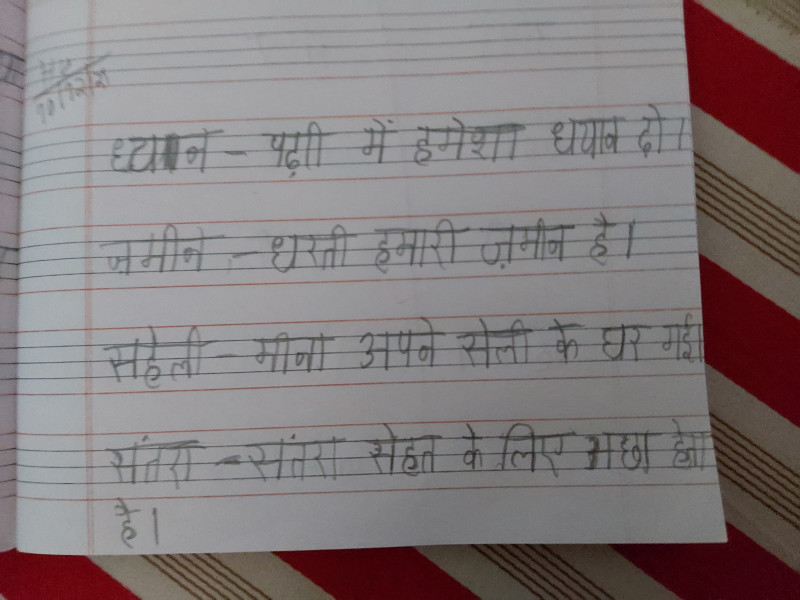 १०/१२/२१
ध्यान - पढ़ी में हमेशा धयान दो।
जमीन - धरती हमारी ज़मीन है।
सहेली - मीना अपने सेली के घर गई।
संतरा - संतरा सेहत के लिए अछा होता
है।